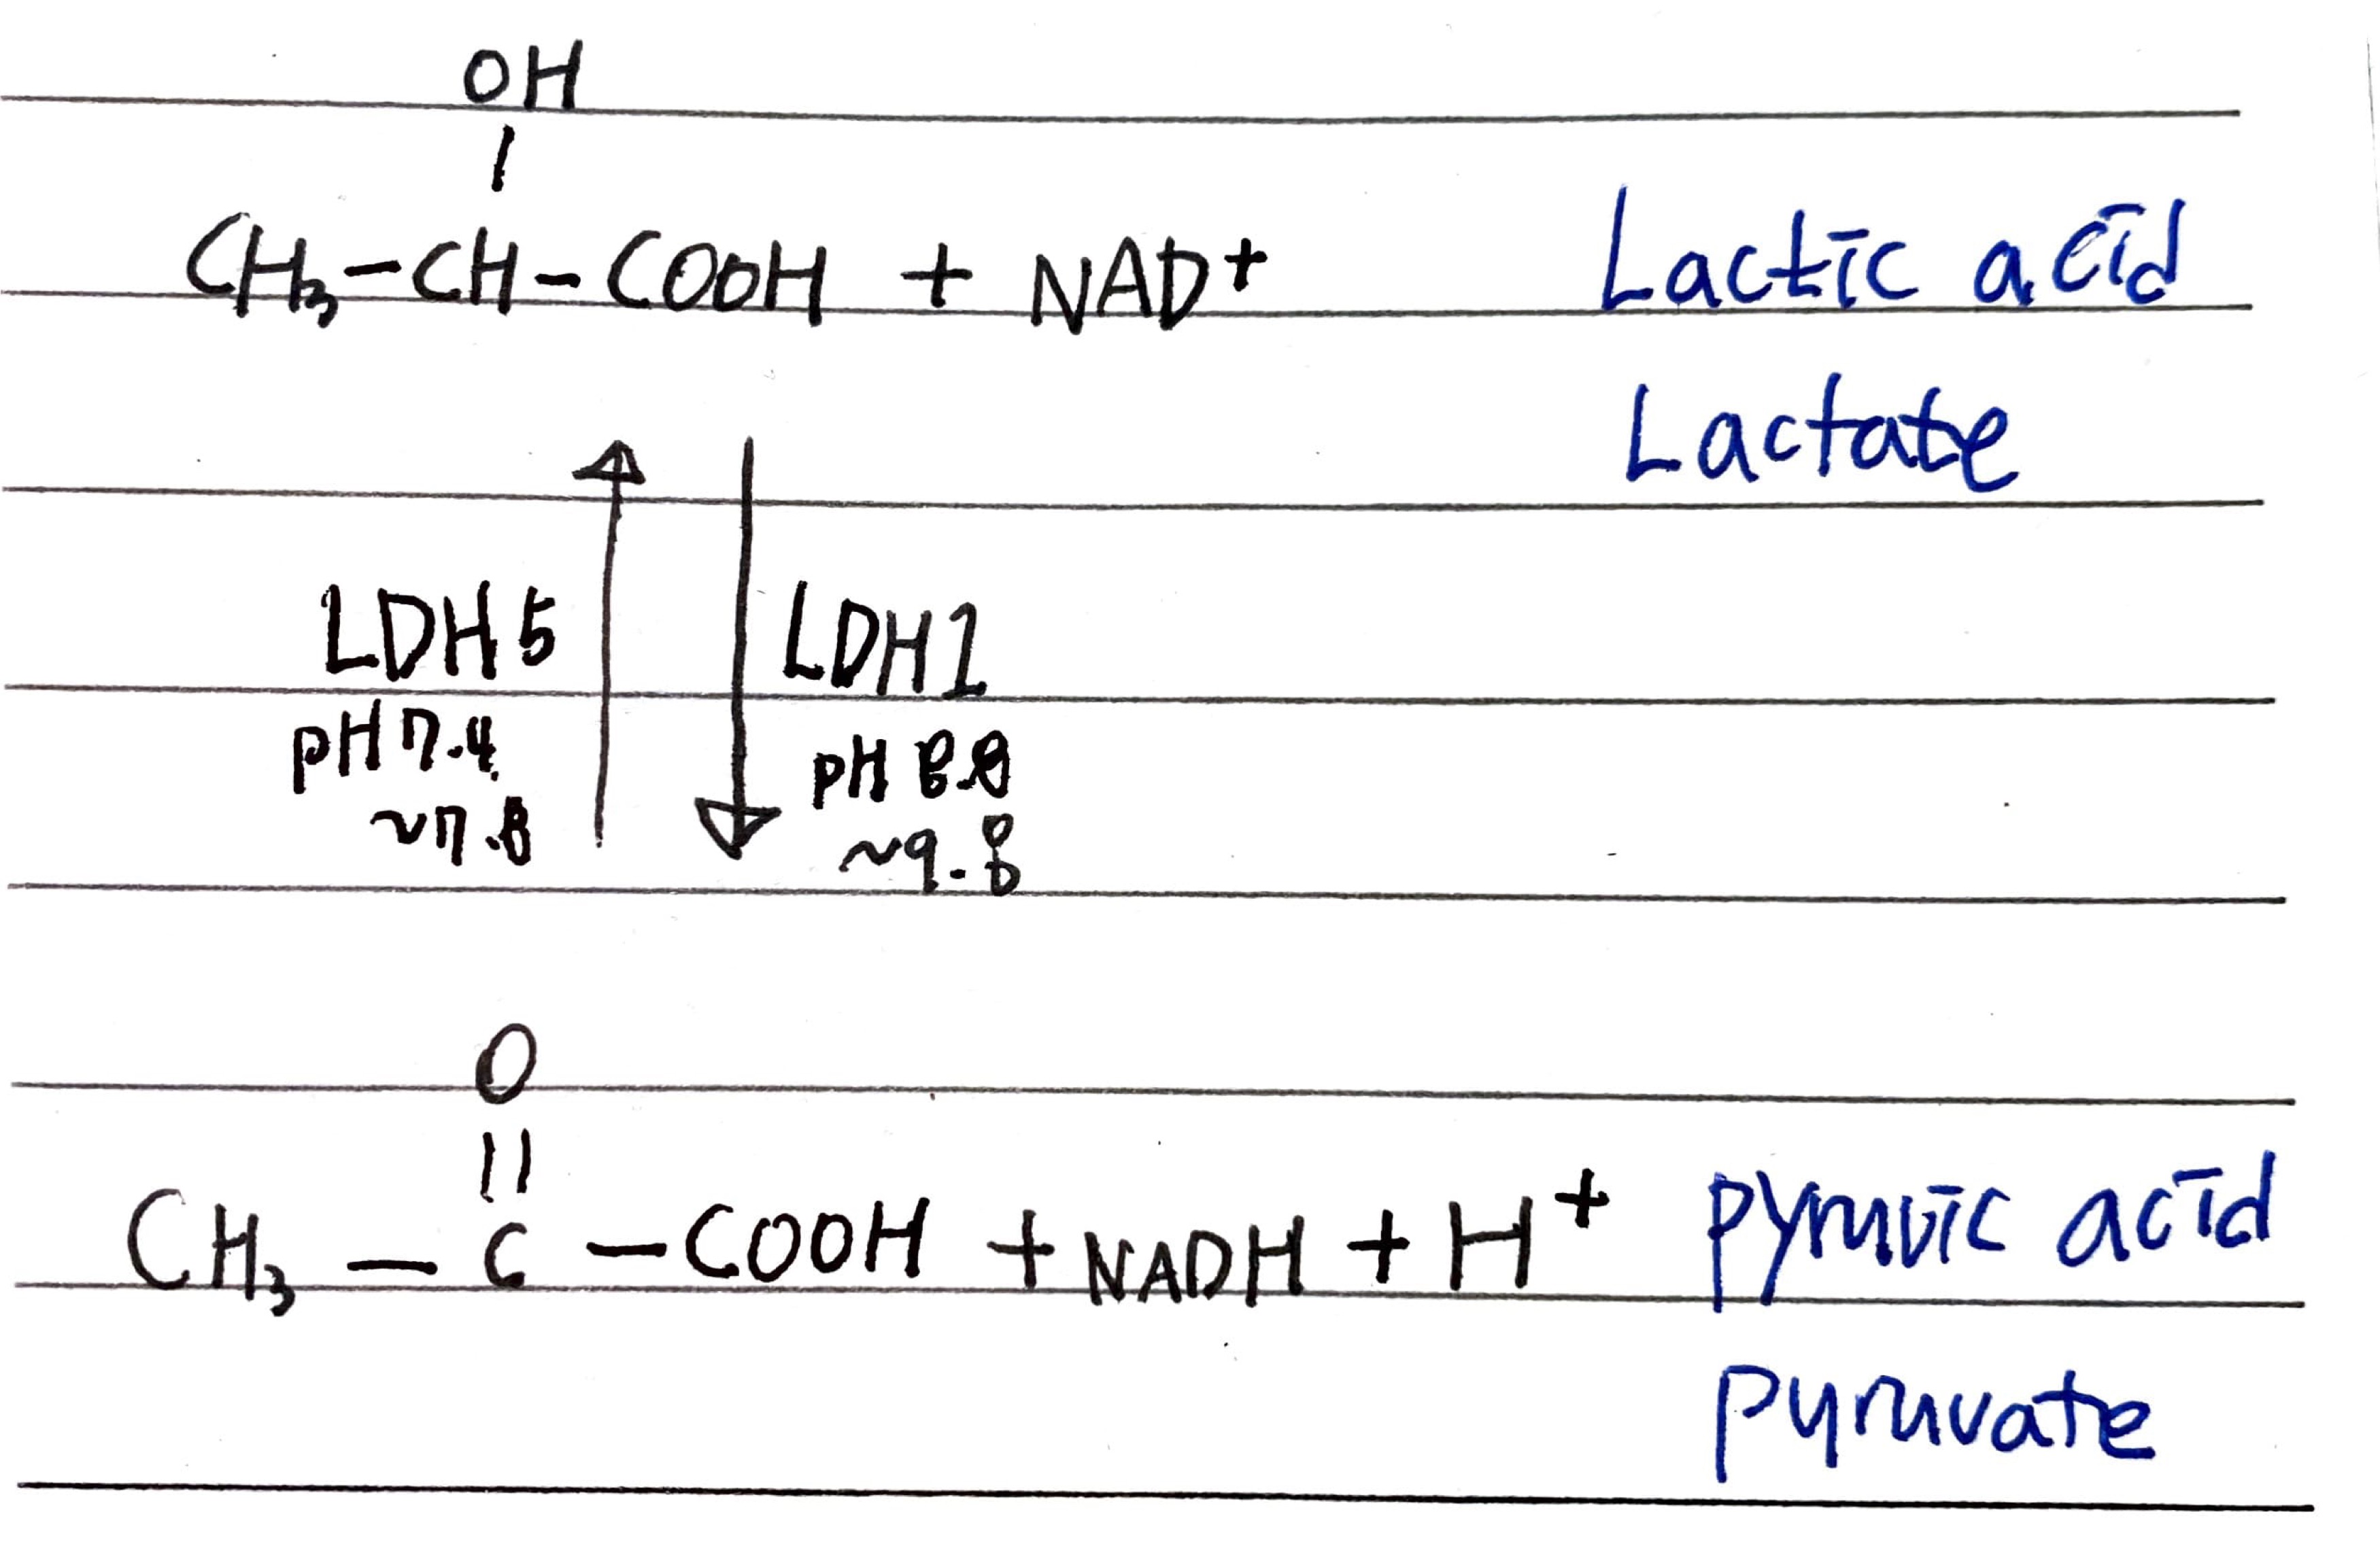 OH
|
CH₃-CH-COOH + NAD+ Lactic acid
Lactate
LDH5 LDH1
pH 7.4 pH 8.8
~7.8 ~9.8
O
||
CH₃-C-COOH + NADH + H⁺ pyruvic acid
pyruvate